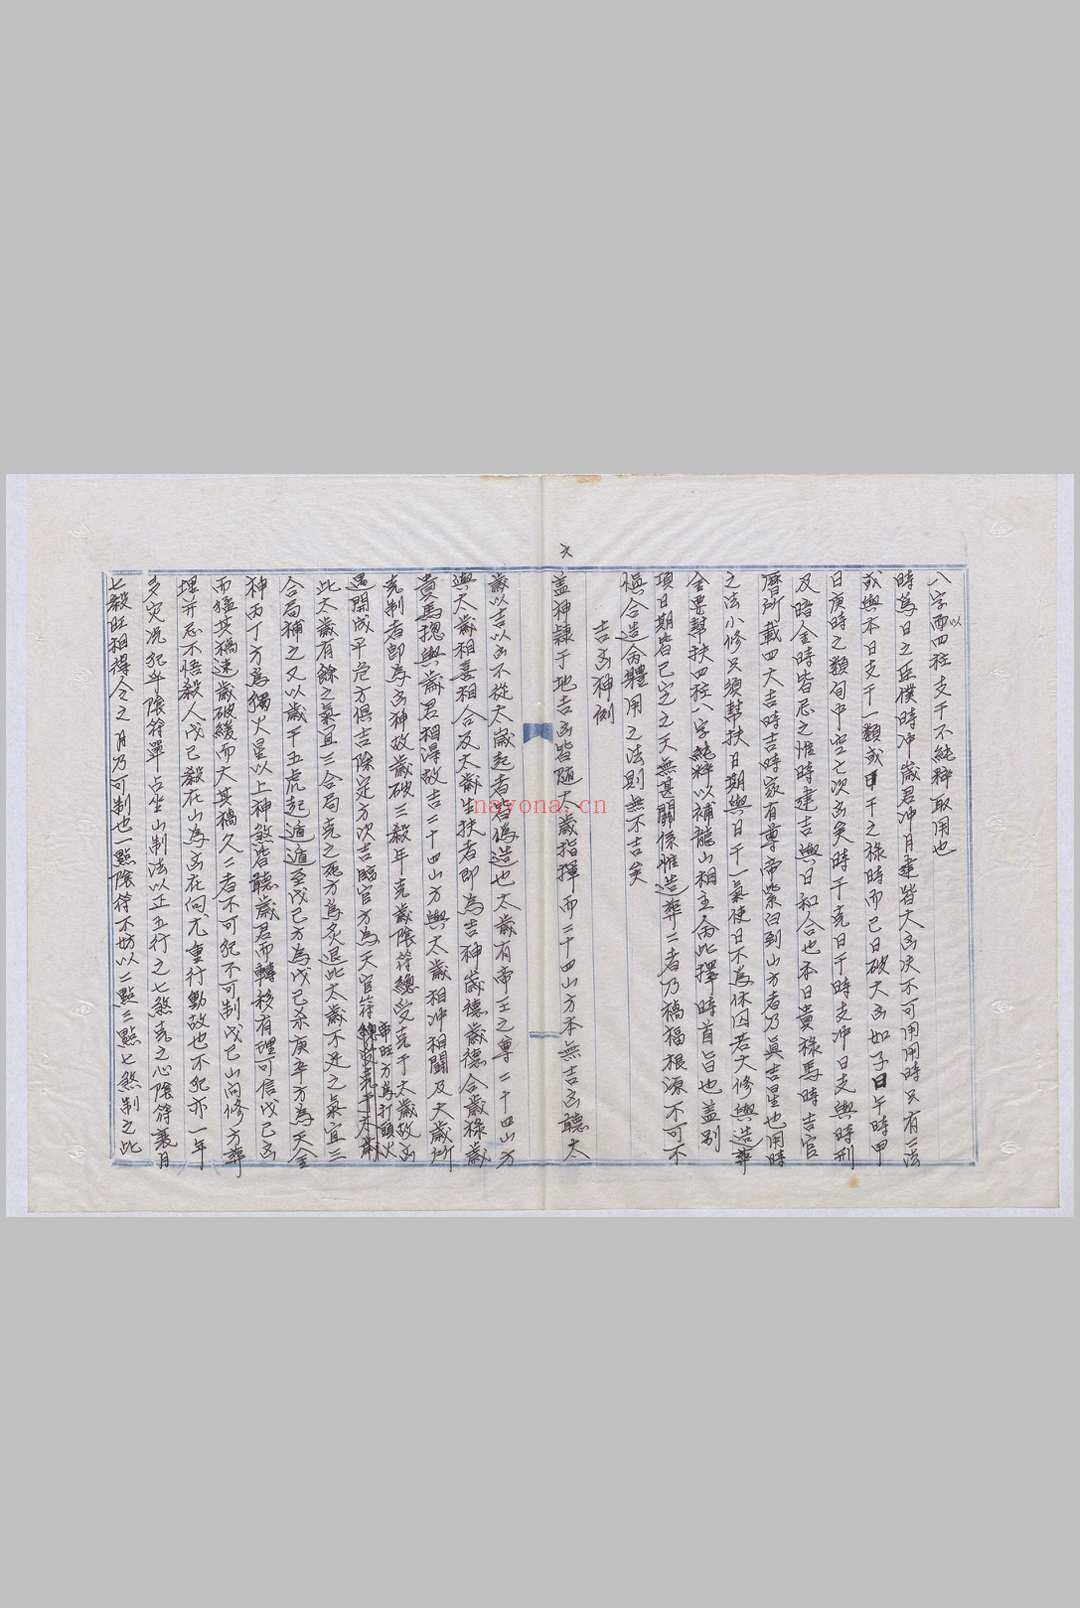 八字而以四柱支干不純粹取用也
時為日之臣僕時冲歲君冲月建皆大凶决不可用用時只有三法
或與本日支干一類或日干之祿時而已日破大凶如子日午時甲
日庚時之類旬中空亡次凶矣時干克日干時支冲日支與時刑
及路空時皆忌之惟時建吉與日和合也本日貴祿馬時吉官
曆所載四大吉時吉時家有尊帝紫白到山方者乃真吉星也用時
之法小修只須幫扶日期與日干一氣使日不為休囚若大修與造葬
全要幫扶四柱八字純粹以補龍山相主命此擇時首旨也蓋別
項日期皆已定之天無甚關係惟造葬二者乃禍福根源不可不
慎合造命體用之法則無不吉矣
吉凶神例
六
蓋神隸于地吉凶皆隨太歲指揮而二十四山方本無吉凶聽太
歲以吉以凶不從太歲起者皆偽造也太歲有帝王之尊二十四山方
與太歲相喜相合及太歲生扶者即為吉神歲德歲德合歲祿歲
貴馬揔與歲君相得故吉二十四山方與太歲相冲相鬪及太歲所
克制者即為凶神故歲破三殺年克歲陰符總受克于太歲故凶
遇開成平危方俱吉除定方次吉臨官方為天官符帝旺方為打頭火
此太歲有餘之氣宜三合局克之死方為炙退此太歲不足之氣宜三
合局補之又以歲干五虎起遁遁至戊己方為戊己杀庚辛方為天金
神丙丁方為獨火星以上神煞皆聽歲君而轉移有理可信戊己凶
而猛其禍速歲破緩而大其禍久二者不可犯不可制戊己山向修方葬
埋并忌不悟殺人戊己殺在山為凶在向尤重行動故也不犯亦一年
多灾况犯乎陰符單占坐山制法以正五行之七煞克之心陰符衰月
七殺旺相得令之月乃可制也一點陰符不妨以二點三點七煞制之此
nayona.cn